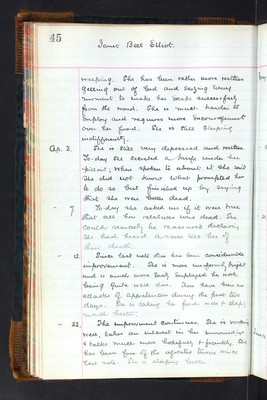 45
Janet Bell Elliot.
weeping. She has been rather more restless
getting out of bed and seizing every
moment to make her escape successfully
from the ward. She is much harder to
employ and requires more encouragement
over her food. She is still sleeping
indifferently.
Ap. 3. She is still very depressed and restless.
To-day she secreted a knife under her
pillow; when spoken to about it she said
she did not know what prompted her
to do so but finished up by saying
that she were better dead.
" 7 To-day she asked me if it were true
that all her relatives were dead. She
could scarcely be reassured declaring
she had heard voices tell her of
their death.
" 12. Since last note there has been considerable
improvement. She is more hopeful, bright
and is much more easily employed her work
being quite well done. There have been no
attacks of apprehension during the past two
days. She is taking her food well & sleeps
much better.
" 22. The improvement continues. She is working
well, takes an interest in her surroundings
& talks much more hopefully & frankly. She
has been free of the agitated times since
last note. She is sleeping better.